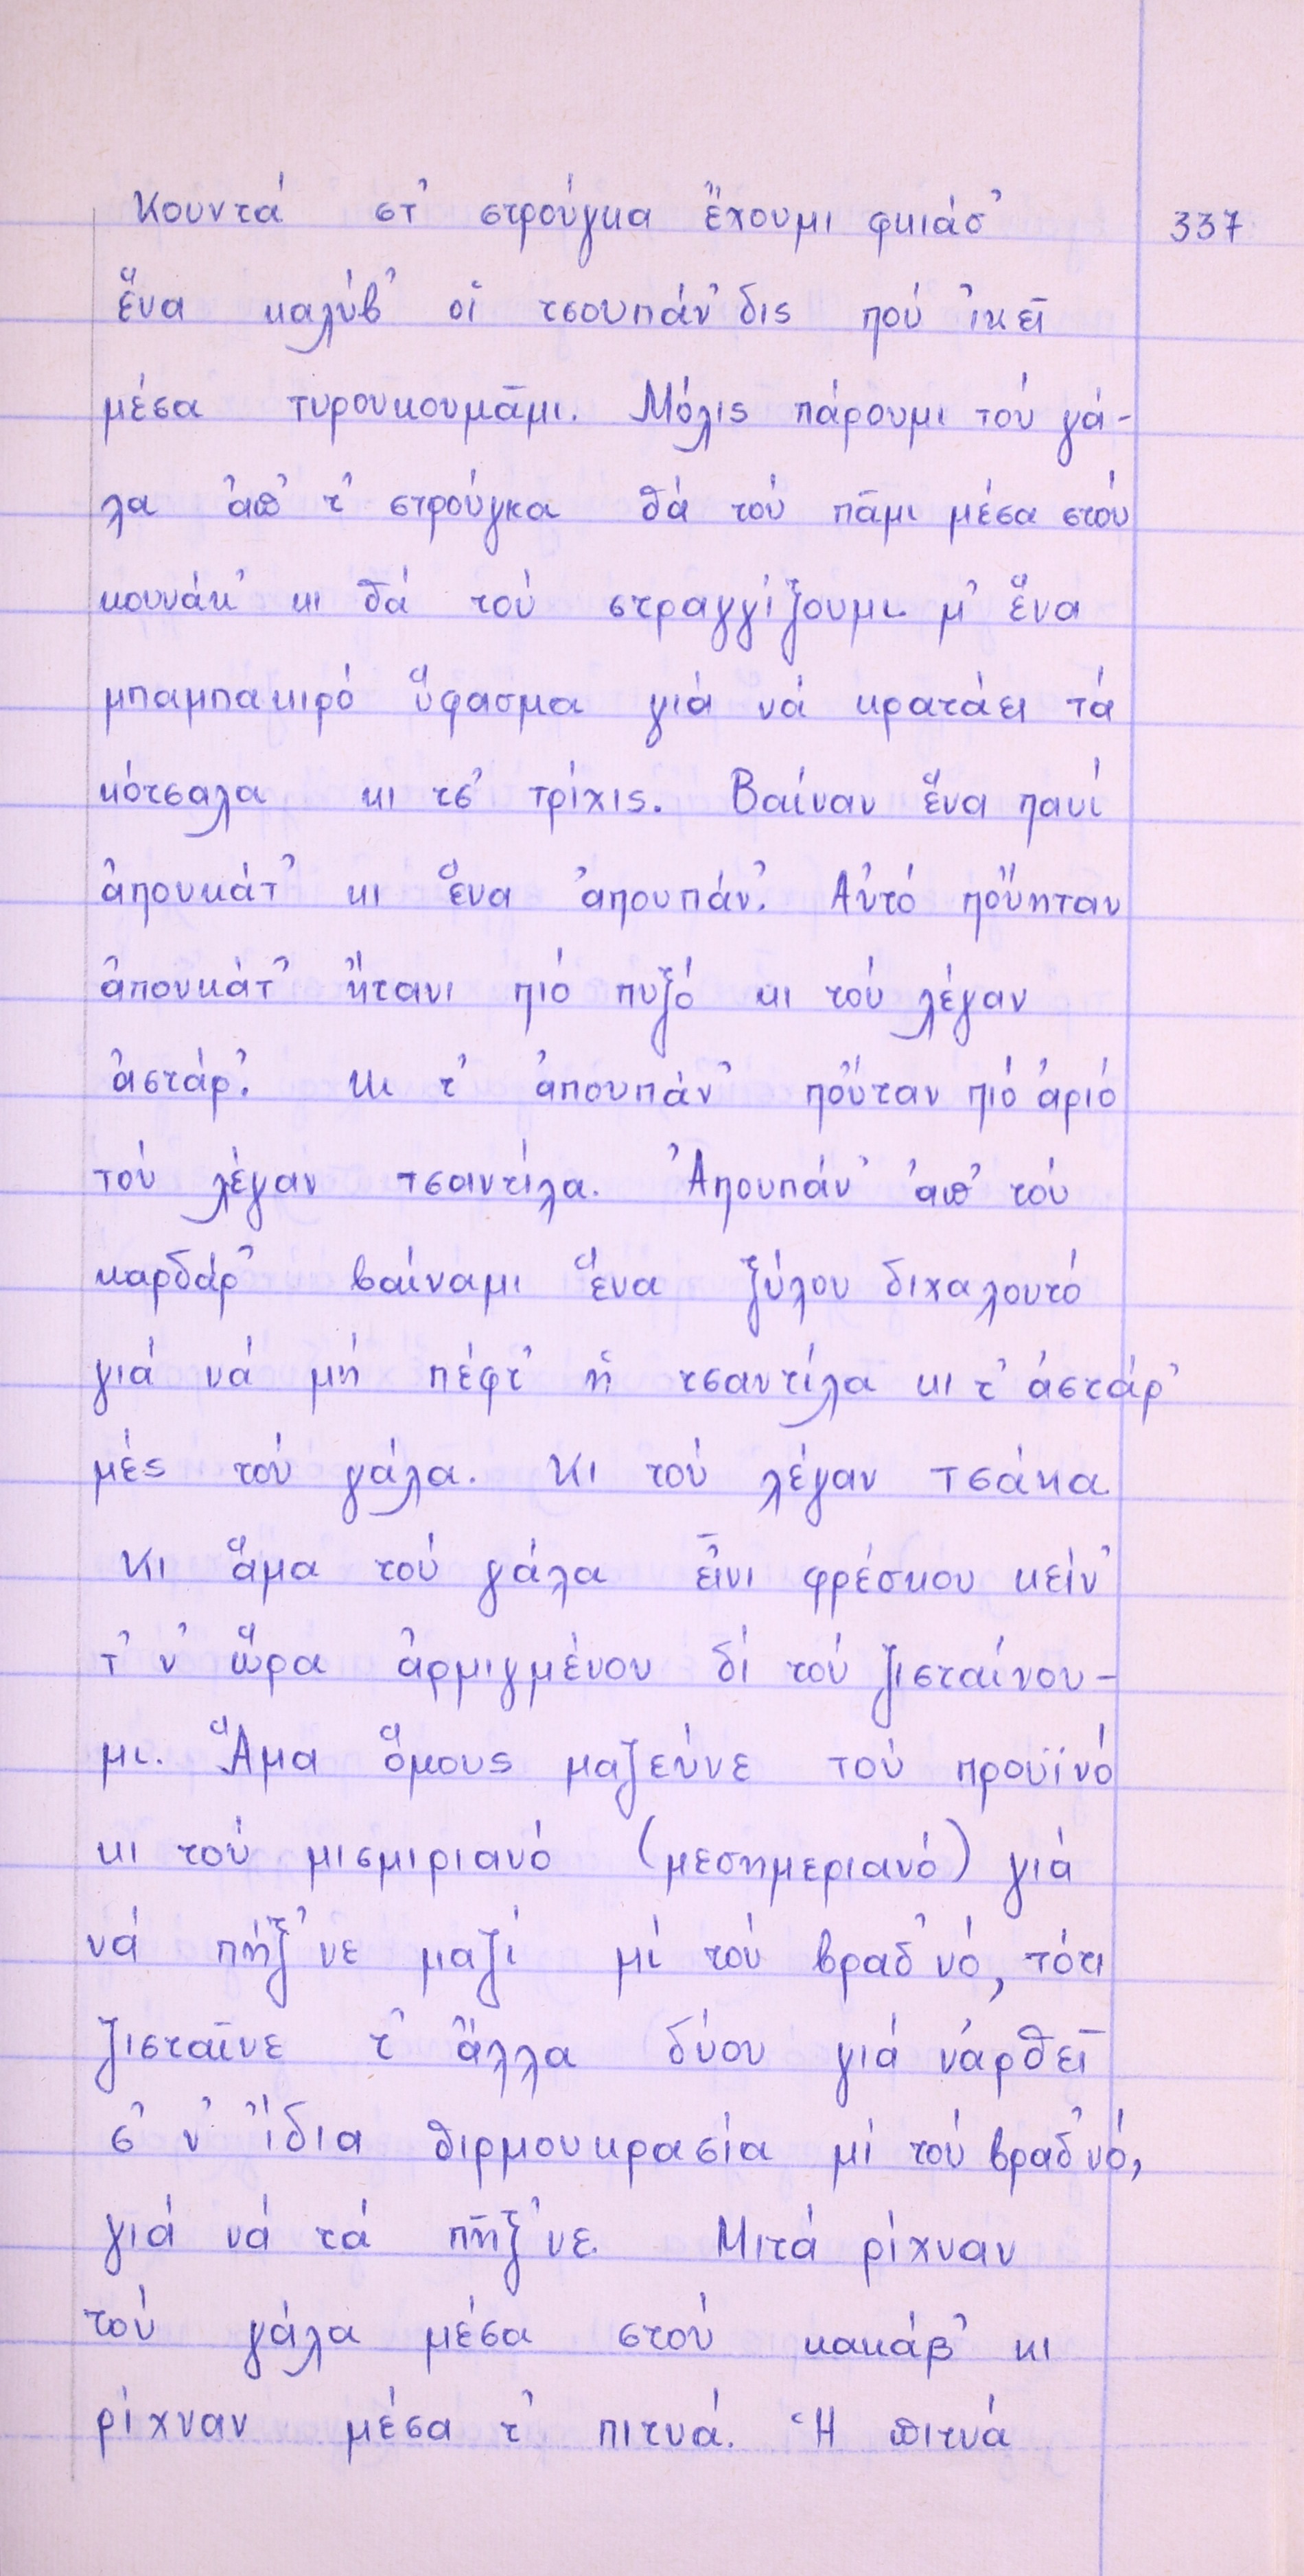 Κουντά στ' στρούγκα ἔχουμι φκιάσ' 337
ἕνα καλύβ' οἱ τσουπάν'δις πού 'κεῖ
μέσα τυρουκουμᾶμι. Μόλις πάρουμι τού γά-
λα ἀπ' τ' στρούγκα θά τού πᾶμι μέσα στού
κουνάκ' κι θά τού στραγγίζουμι μ' ἕνα
μπαμπακιρό ὕφασμα γιά νά κρατάει τά
κότσαλα κι τσ' τρίχις. Βαίναν ἕνα πανί
ἀπουκάτ' κι ἕνα ἀπουπάν'. Αὐτό πὄηταν
ἀπουκάτ' ἤτανι πιό πυξό κι τού λέγαν
ἀστάρ'. Κι τ' ἀπουπάν' ποὔταν πιό ἀριό
τού λέγαν τσαντίλα. Ἀπουπάν' ἀπ' τού
καρδάρ' βαίναμι ἕνα ξύλου διχαλουτό
γιά νά μή πέφτ' ἡ τσαντίλα κι τ' ἀστάρ'
μές τού γάλα. Κι τού λέγαν τσάκα.
Κι ἅμα τού γάλα εἶνι φρέσκου κείν'
τ' ν' ὥρα ἀρμιγμένου δί τού ζισταίνου-
μι. Ἅμα ὅμους μαζεύνε τού προυϊνό
κι τού μισμιριανό (μεσημεριανό) γιά
νά πήξ'νε μαζί μί τού βραδ'νό, τότι
ζισταῖνε τ' ἄλλα δύου γιά νάρθεῖ
σ' ν' ἴδια θιρμουκρασία μί τού βραδ'νό,
γιά νά τά πῆξ'νε. Μιτά ρίχναν
τού γάλα μέσα στού κακάβ' κι
ρίχναν μέσα τ' πιτυά. Ἡ πιτυά